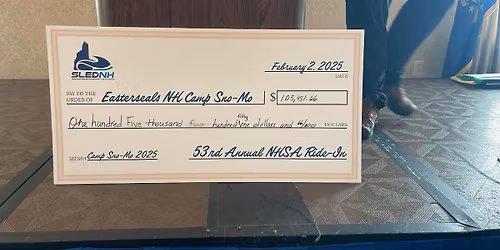 SLEDNH
February 2, 2025
DATE
PAY TO THE
ORDER OF
Easterseals NH Camp Sno-Mo
$
DOLLARS
One hundred Five thousand hundred dollars and
MEMO Camp Sno-Mo 2025
53rd Annual NHSA Ride-In